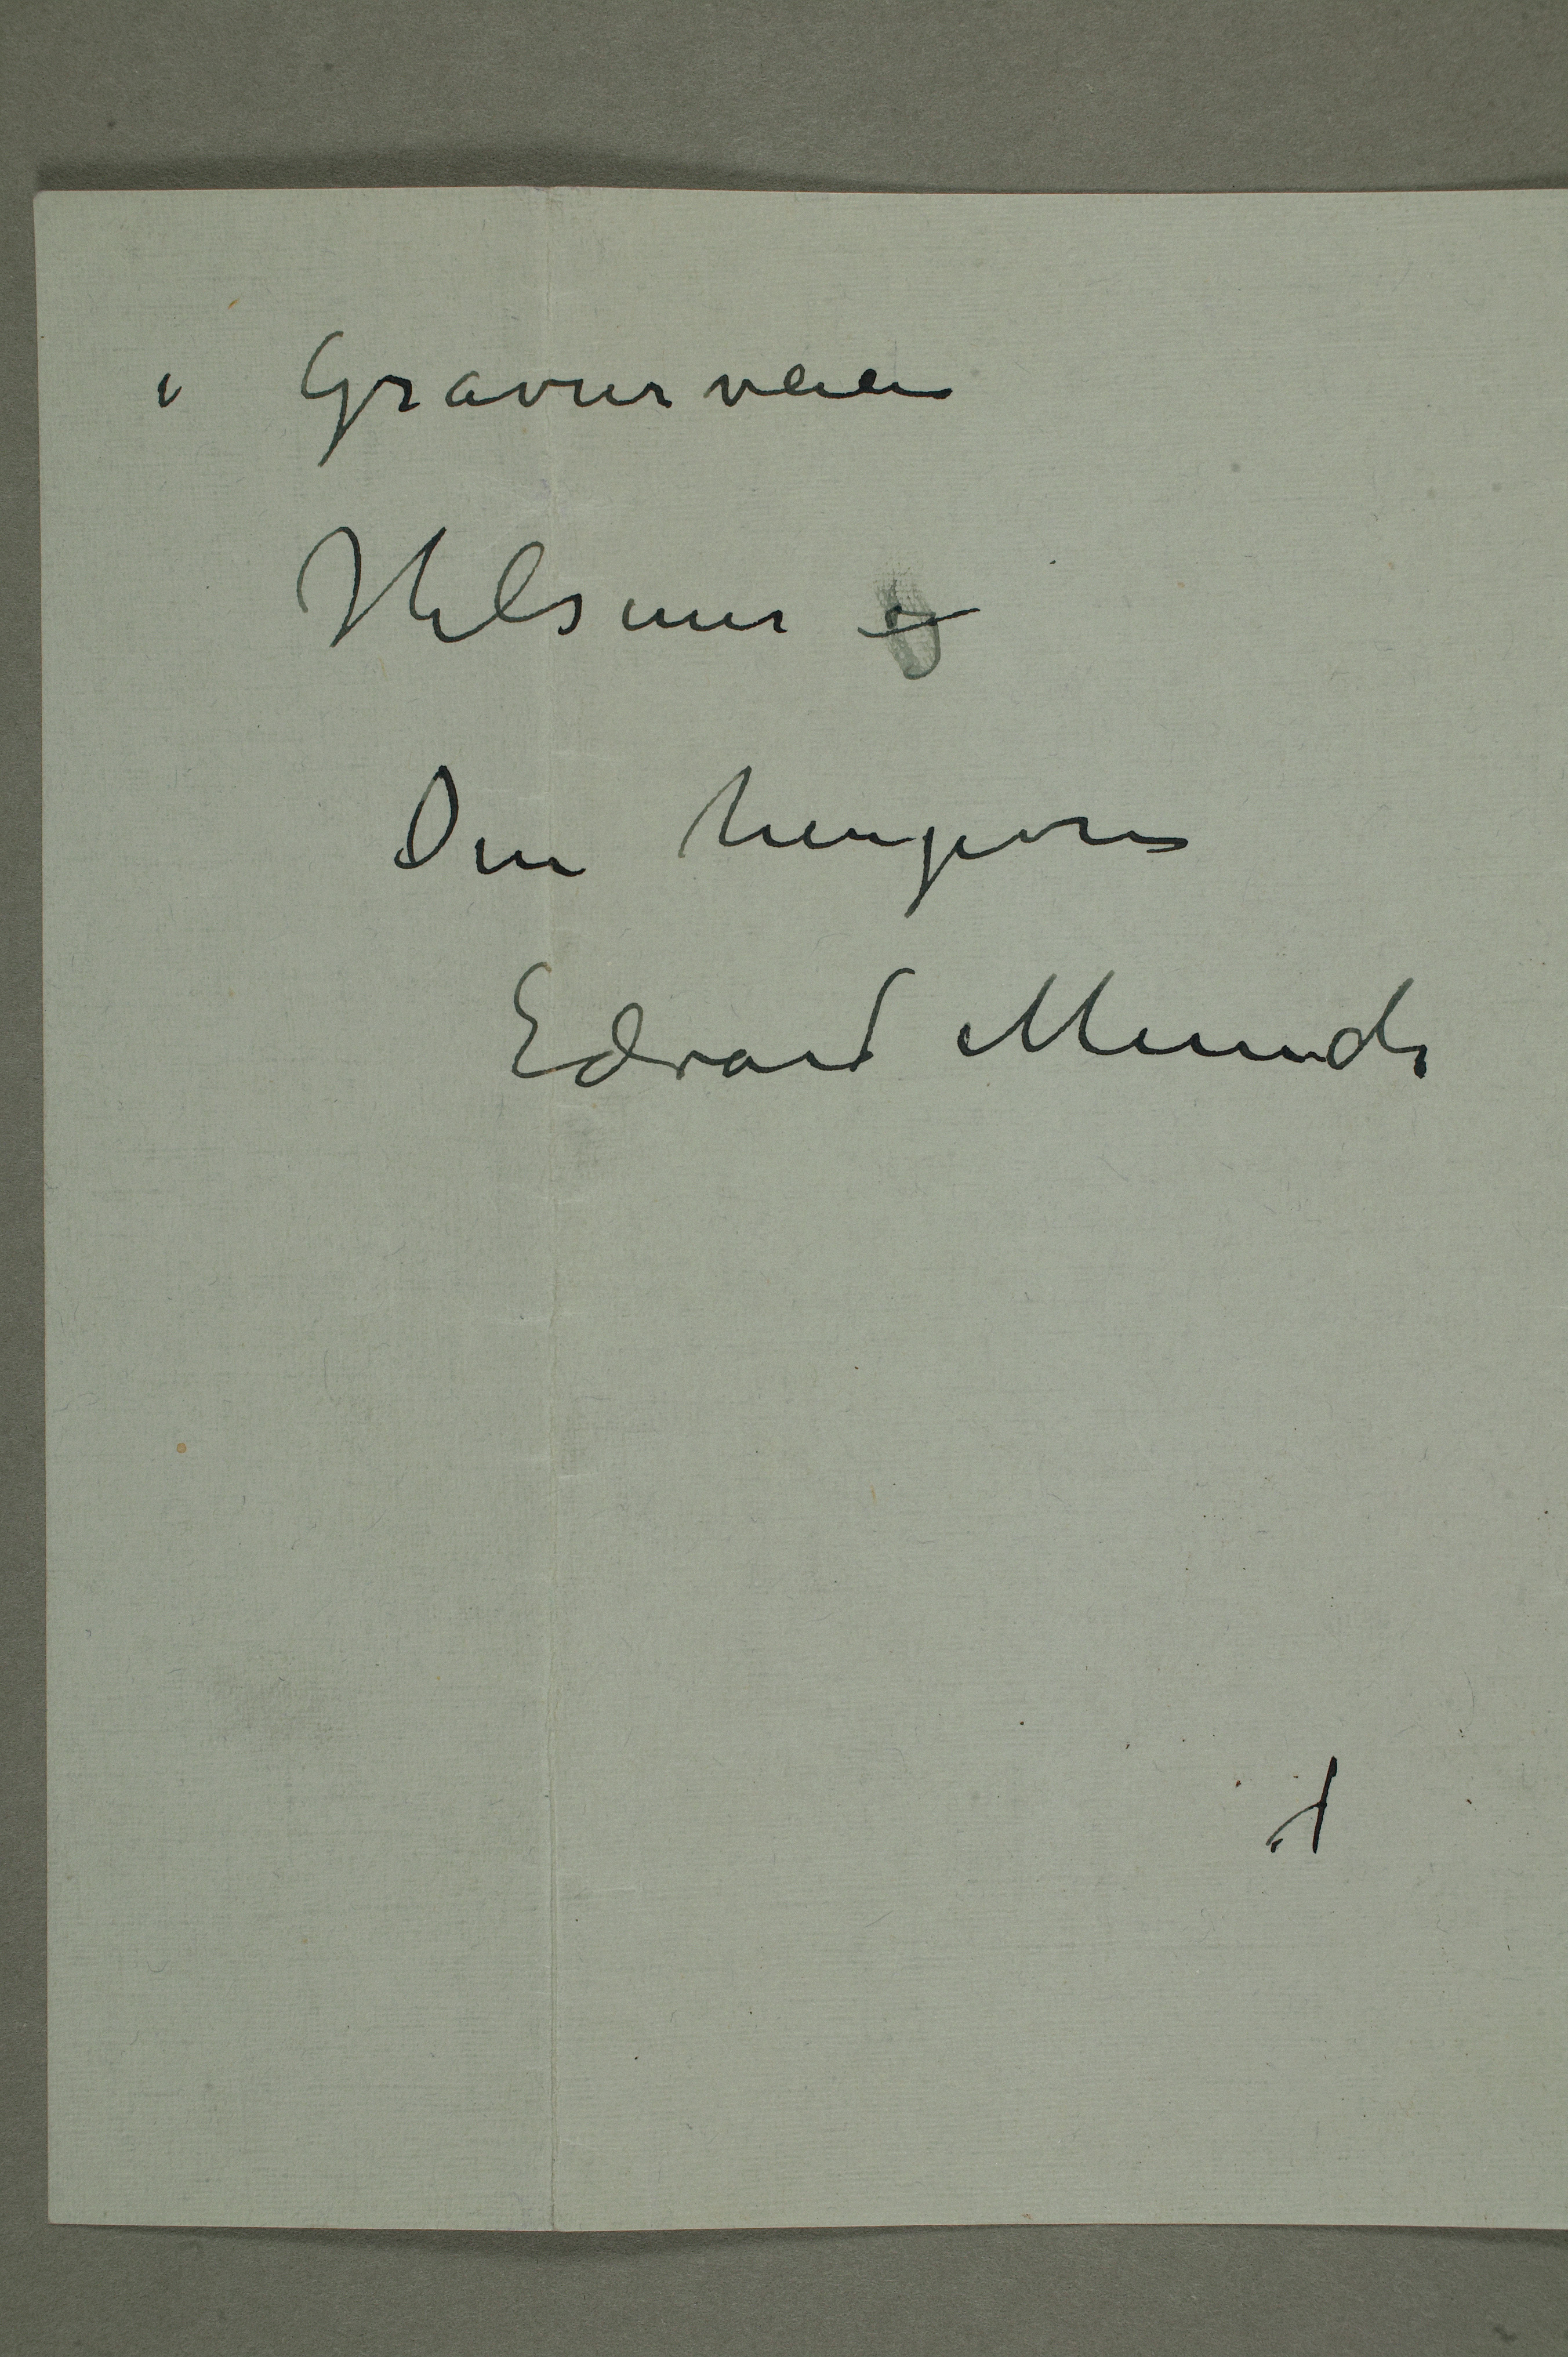 i Graverveien
Hilsener
Din hengivne
Edvard Munch